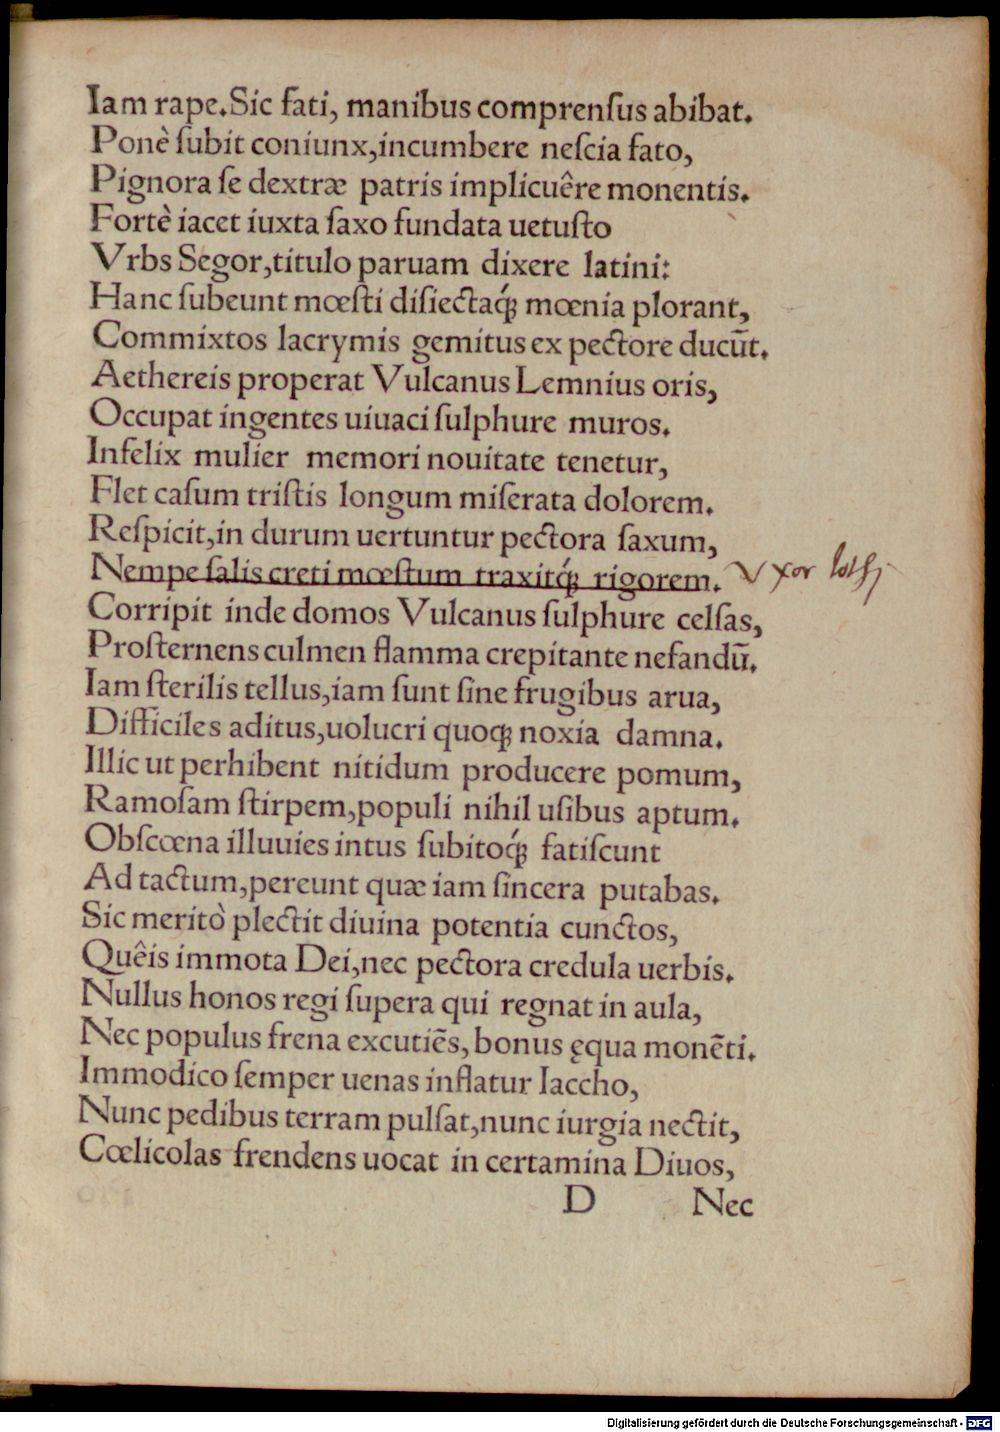 Iam rape.Sic fati, manibus comprenſus abibat.
Ponè ſubit coniunx,incumbere neſcia fato,
Pignora ſe dextræ patris implicuêre monentis.
Fortè iacet iuxta ſaxo fundata uetuſto
Vrbs Segor,titulo paruam dixere latini:
Hanc ſubeunt mœſti diſiectaq́ꝫ mœnia plorant,
Commixtos lacrymis gemitus ex pectore ducūt.
Aethereis properat Vulcanus Lemnius oris,
Occupat ingentes uiuaci ſulphure muros.
Infelix mulier memori nouitate tenetur,
Flet caſum triſtis longum miſerata dolorem.
Reſpicit,in durum uertuntur pectora ſaxum,
Nempe ſalis creti mœſtum traxitq́ꝫ rigorem. Vxor loth
Corripit inde domos Vulcanus ſulphure celſas,
Proſternens culmen flamma crepitante nefandū.
Iam ſterilis tellus,iam ſunt ſine frugibus arua,
Difficiles aditus,uolucri quoqꝫ noxia damna.
Illic ut perhibent nitidum producere pomum,
Ramoſam ſtirpem,populi nihil uſibus aptum.
Obſcœna illuuies intus ſubitoq́ꝫ fatiſcunt
Ad tactum,pereunt quæ iam ſincera putabas.
Sic meritò plectit diuina potentia cunctos,
Quêis immota Dei,nec pectora credula uerbis.
Nullus honos regi ſupera qui regnat in aula,
Nec populus frena excutiēs, bonus ęqua monēti.
Immodico ſemper uenas inflatur Iaccho,
Nunc pedibus terram pulſat,nunc iurgia nectit,
Cœlicolas frendens uocat in certamina Diuos,
D Nec
Digitalisierung gefördert durch die Deutsche Forschungsgemeinschaft - DFG